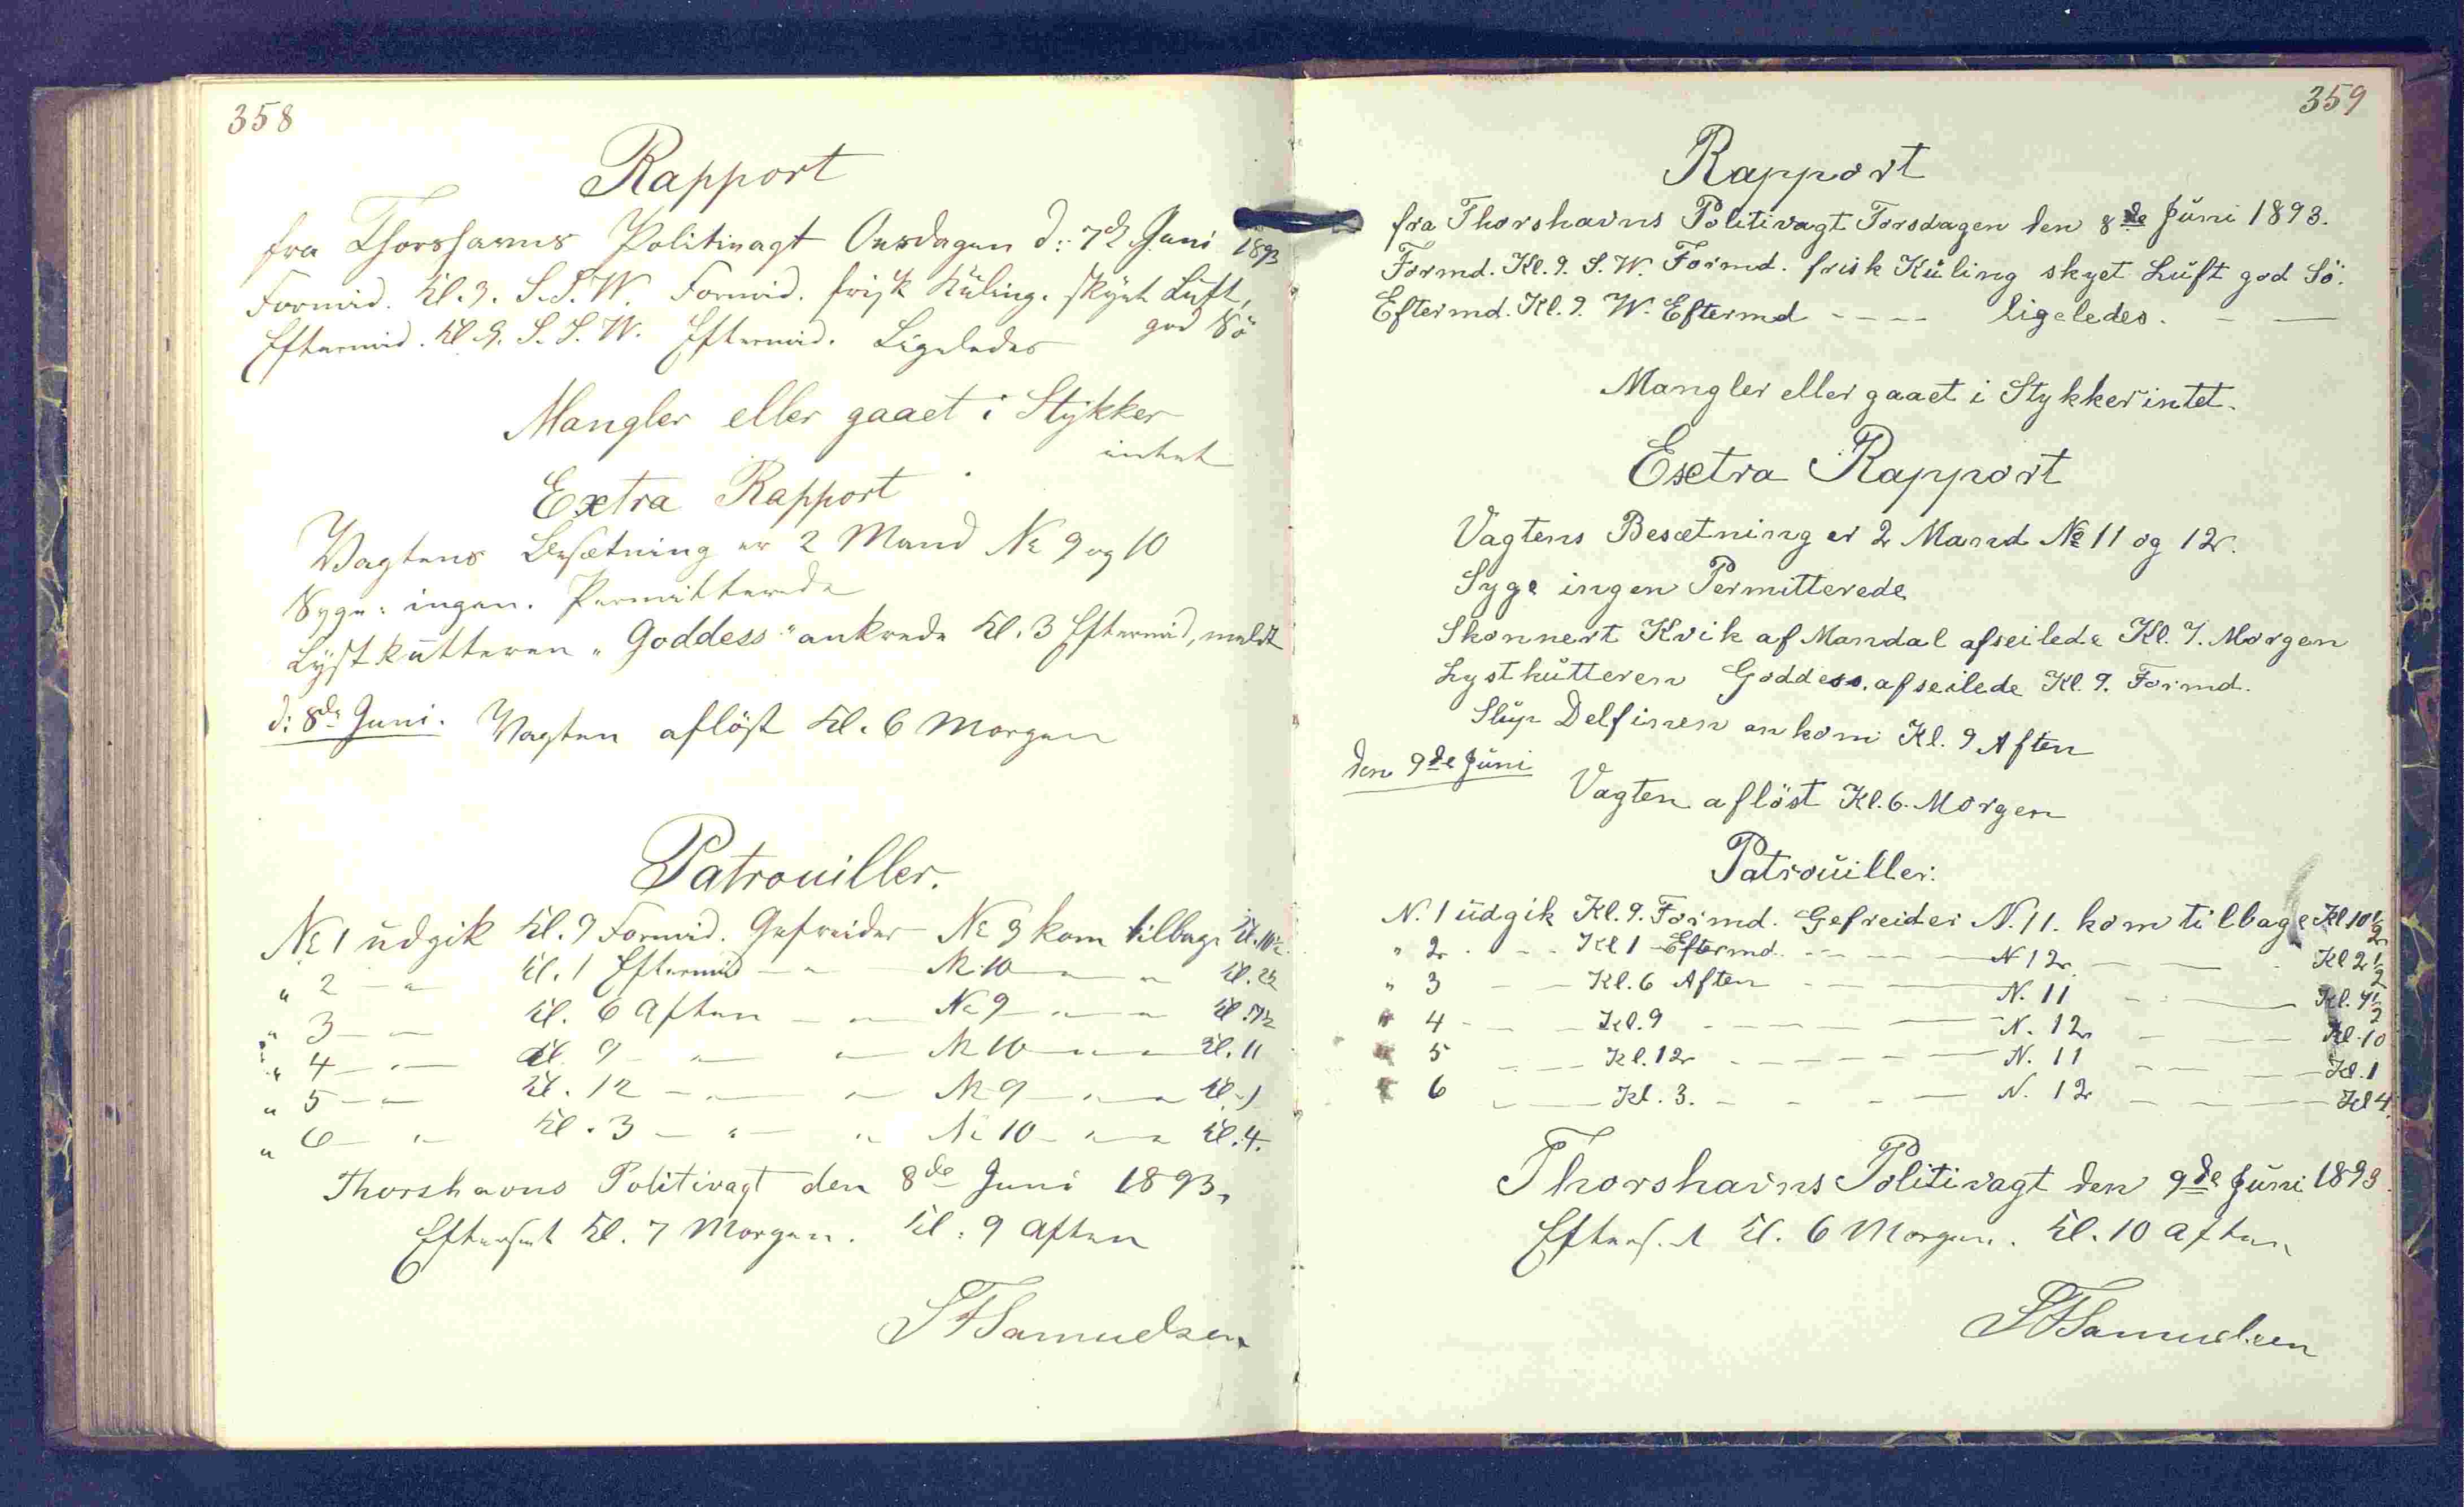 358
Rapport
fra Thorshavns Politivagt Onsdagen d: 7de Juni 1893
Formid. Kl. 9. S.S.W. Formid. frisk Küling. skyet Luft,
god Sö
Eftermid. Kl. 9. S.S.W. Eftermid. Ligeledes
Mangler eller gaaet i Stykker
intet
Extra Rapport
Vagtens Besætning er 2 Mand No 9 og 10
Syge: ingen. Permitterede
Lystkütteren „Goddess" ankrede Kl. 3 Eftermid, meldt
d: 8de Juni. Vagten aflöst Kl. 6 Morgen
Patrouiller.
No 1 üdgik Kl. 9 Formid. Gefreider No 9 kom tilbage Kl. 10½
" 2 — " Kl. 1 Eftermid — " — No 10 — " — " Kl. 2½
" 3 — " Kl. 6 Aften — " — No 9 — " — " Kl. 7½
" 4 — " — Kl. 9 — " — " — No 10 — " — " Kl. 11
" 5 — " Kl. 12 — " — " — No 9 — " — " Kl. 1
" 6 — " Kl. 3 — " — " No 10 — " — " Kl. 4.
Thorshavns Politivagt den 8de Juni 1893.
Efterset Kl. 7 Morgen. Kl: 9 Aften
SFSamuelsen
359
Rapport
fra Thorshavns Politivagt Torsdagen den 8de Jüni 1893.
Formd. Kl. 9. S.W. Formd. frisk Küling skyet Lüft god Sö.
Eftermd. Kl. 9. W. Eftermd - - - - ligeledes. - —
Mangler eller gaaet i Stykker intet.
Esctra Rapport
Vagtens Besætning er 2 Mand No 11 og 12.
Syge ingen Permitterede
Skonnert Kvik af Mandal afseilede Kl. 7. Morgen
Lystkütteren Goddess. afseilede Kl. 9. Formd.
Slüp Delfinen ankom Kl. 9 Aften
den 9de Jüni
Vagten aflöst Kl. 6. Morgen
Patroüiller.
N. 1 üdgik Kl. 9. Formd. Gefreider N. 11. kom tilbage Kl 10½
" 2 . - - Kl 1 Eftermd. - - — — N 12 — — Kl 2½
" 3 — — Kl. 6 Aften - - — — N. 11 - — — Kl. 7½
" 4 - — — Kl. 9 - - — — — N. 12 - — — Kl. 10
" 5 - — — Kl. 12 - — — — N. 11 — — — Kl. 1
" 6 — — Kl. 3. - - - — N. 12 — — — Kl 4.
Thorshavns Politivagt den 9de Jüni 1893
Efterset Kl. 6 Morgen. Kl. 10 Aften
SFSamuelsen